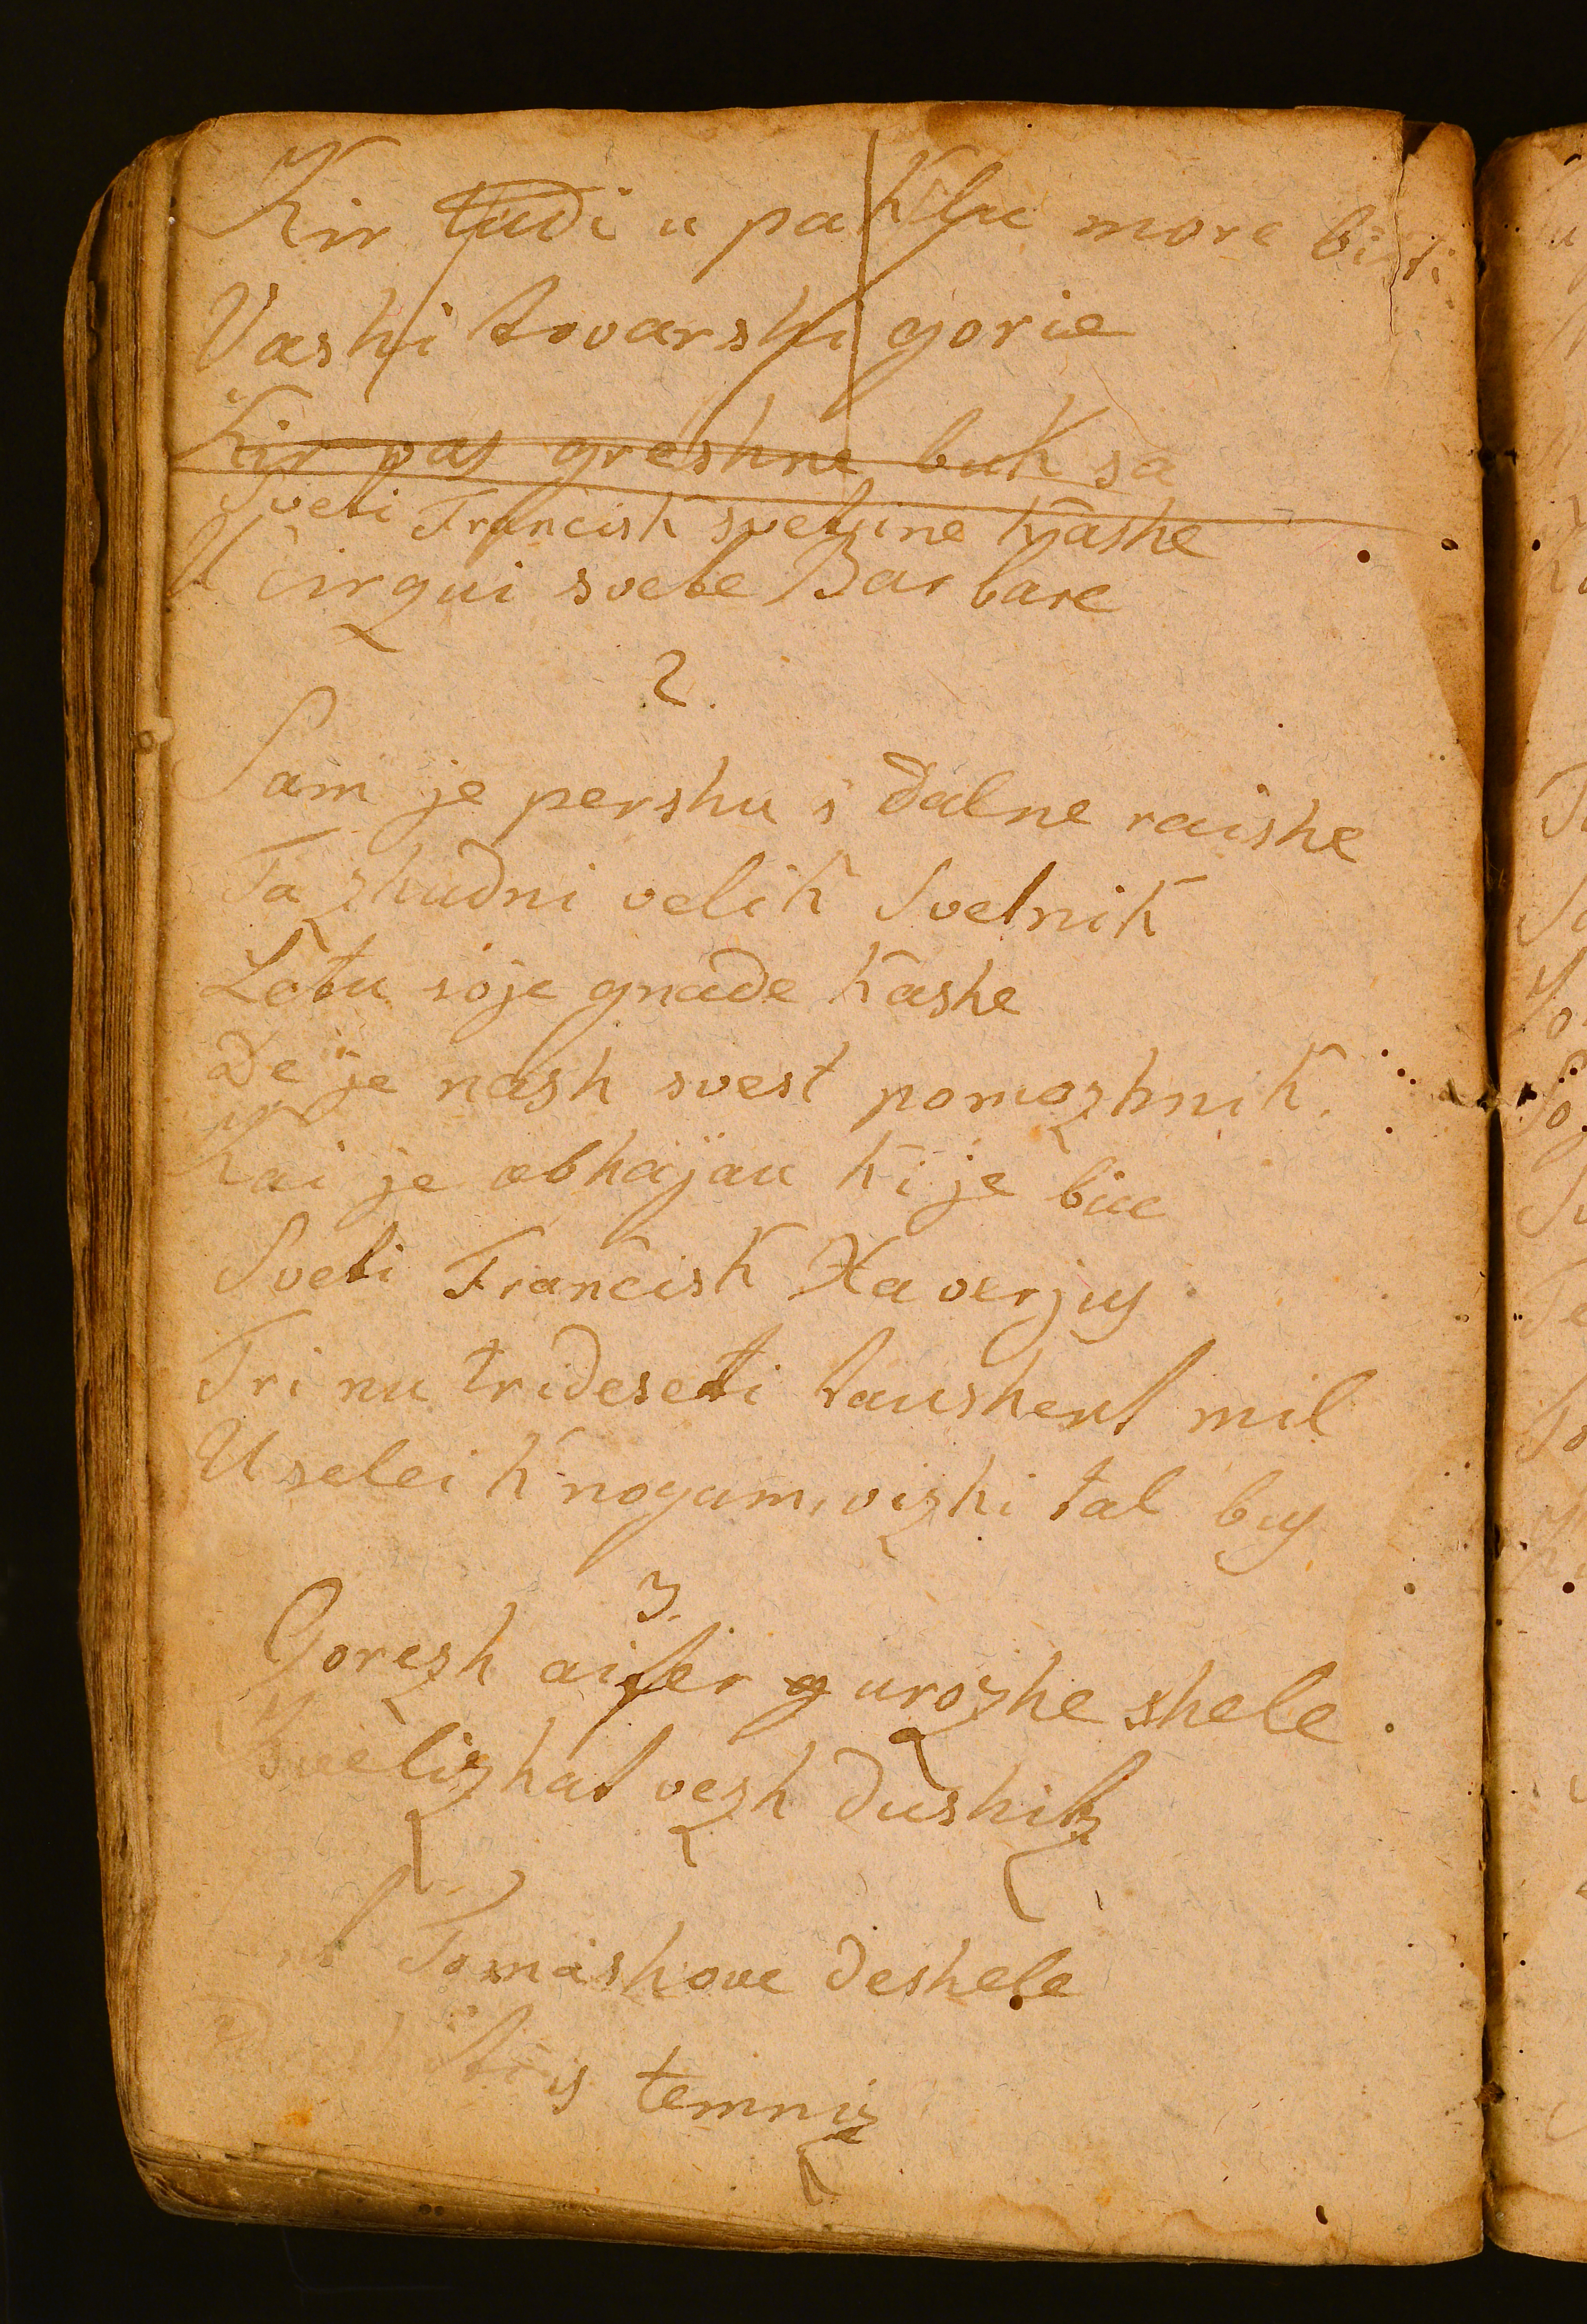 Kir tudi u paklu more biti
Vashi tovarshi gorie
Kir pas greshne buk sa
Sveti Francisk svetzine kashe
U cirqui svete Barbare
2.
Sam je pershu s dalne raishe
Ta zhudni velik Svetnik
Letu soje gnade kashe
De je nash svest pomozhnik.
Kai je obhajau ki je biu
Sveti Francisk Xaverjus
Tri nu trideseti taushent mil
U selei k nogam, vizhi tal bus
3.
Gorezh aifer g urozhe shele
Svelizhat vezh dushitz
Tomashove deshele
is temniz